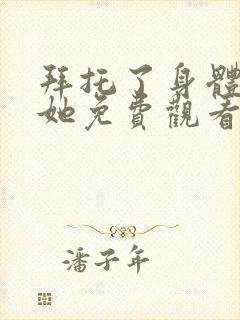 拜托了身體
她免費觀看
潘子年